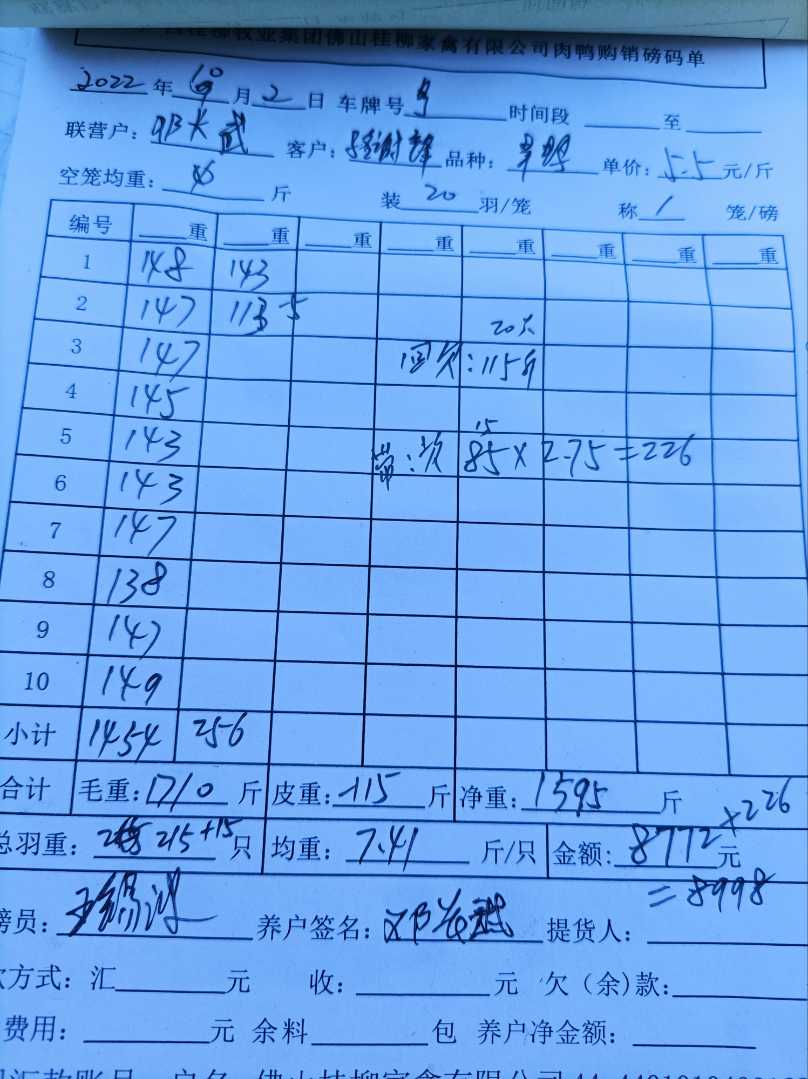 桂柳牧业集团佛山桂柳家禽有限公司肉鸭购销磅码单
2022 年 月 2 日 车牌号 时间段 至
联营户: 邓大武 客户: 品种: 单价: 5.5 元/斤
空笼均重: 斤 装 20 羽/笼 称 1 笼/磅
编号 重 重 重 重 重 重 重 重
1 148 143
2 147 113 5
20只
3 147 回欠:115斤
4 145
15
5 143 欠 85×2.75=226
6 143
7 147
8 138
9 147
10 149
小计 1454 256
合计 毛重: 1710 斤 皮重: -115 斤 净重: 1595 斤
+226
总羽重: 215+15 只 均重: 7.41 斤/只 金额: 8772 元
=8998
磅员: 养户签名: 邓大武 提货人:
款方式: 汇 元 收: 元 欠(余)款:
费用: 元 余料 包 养户净金额: